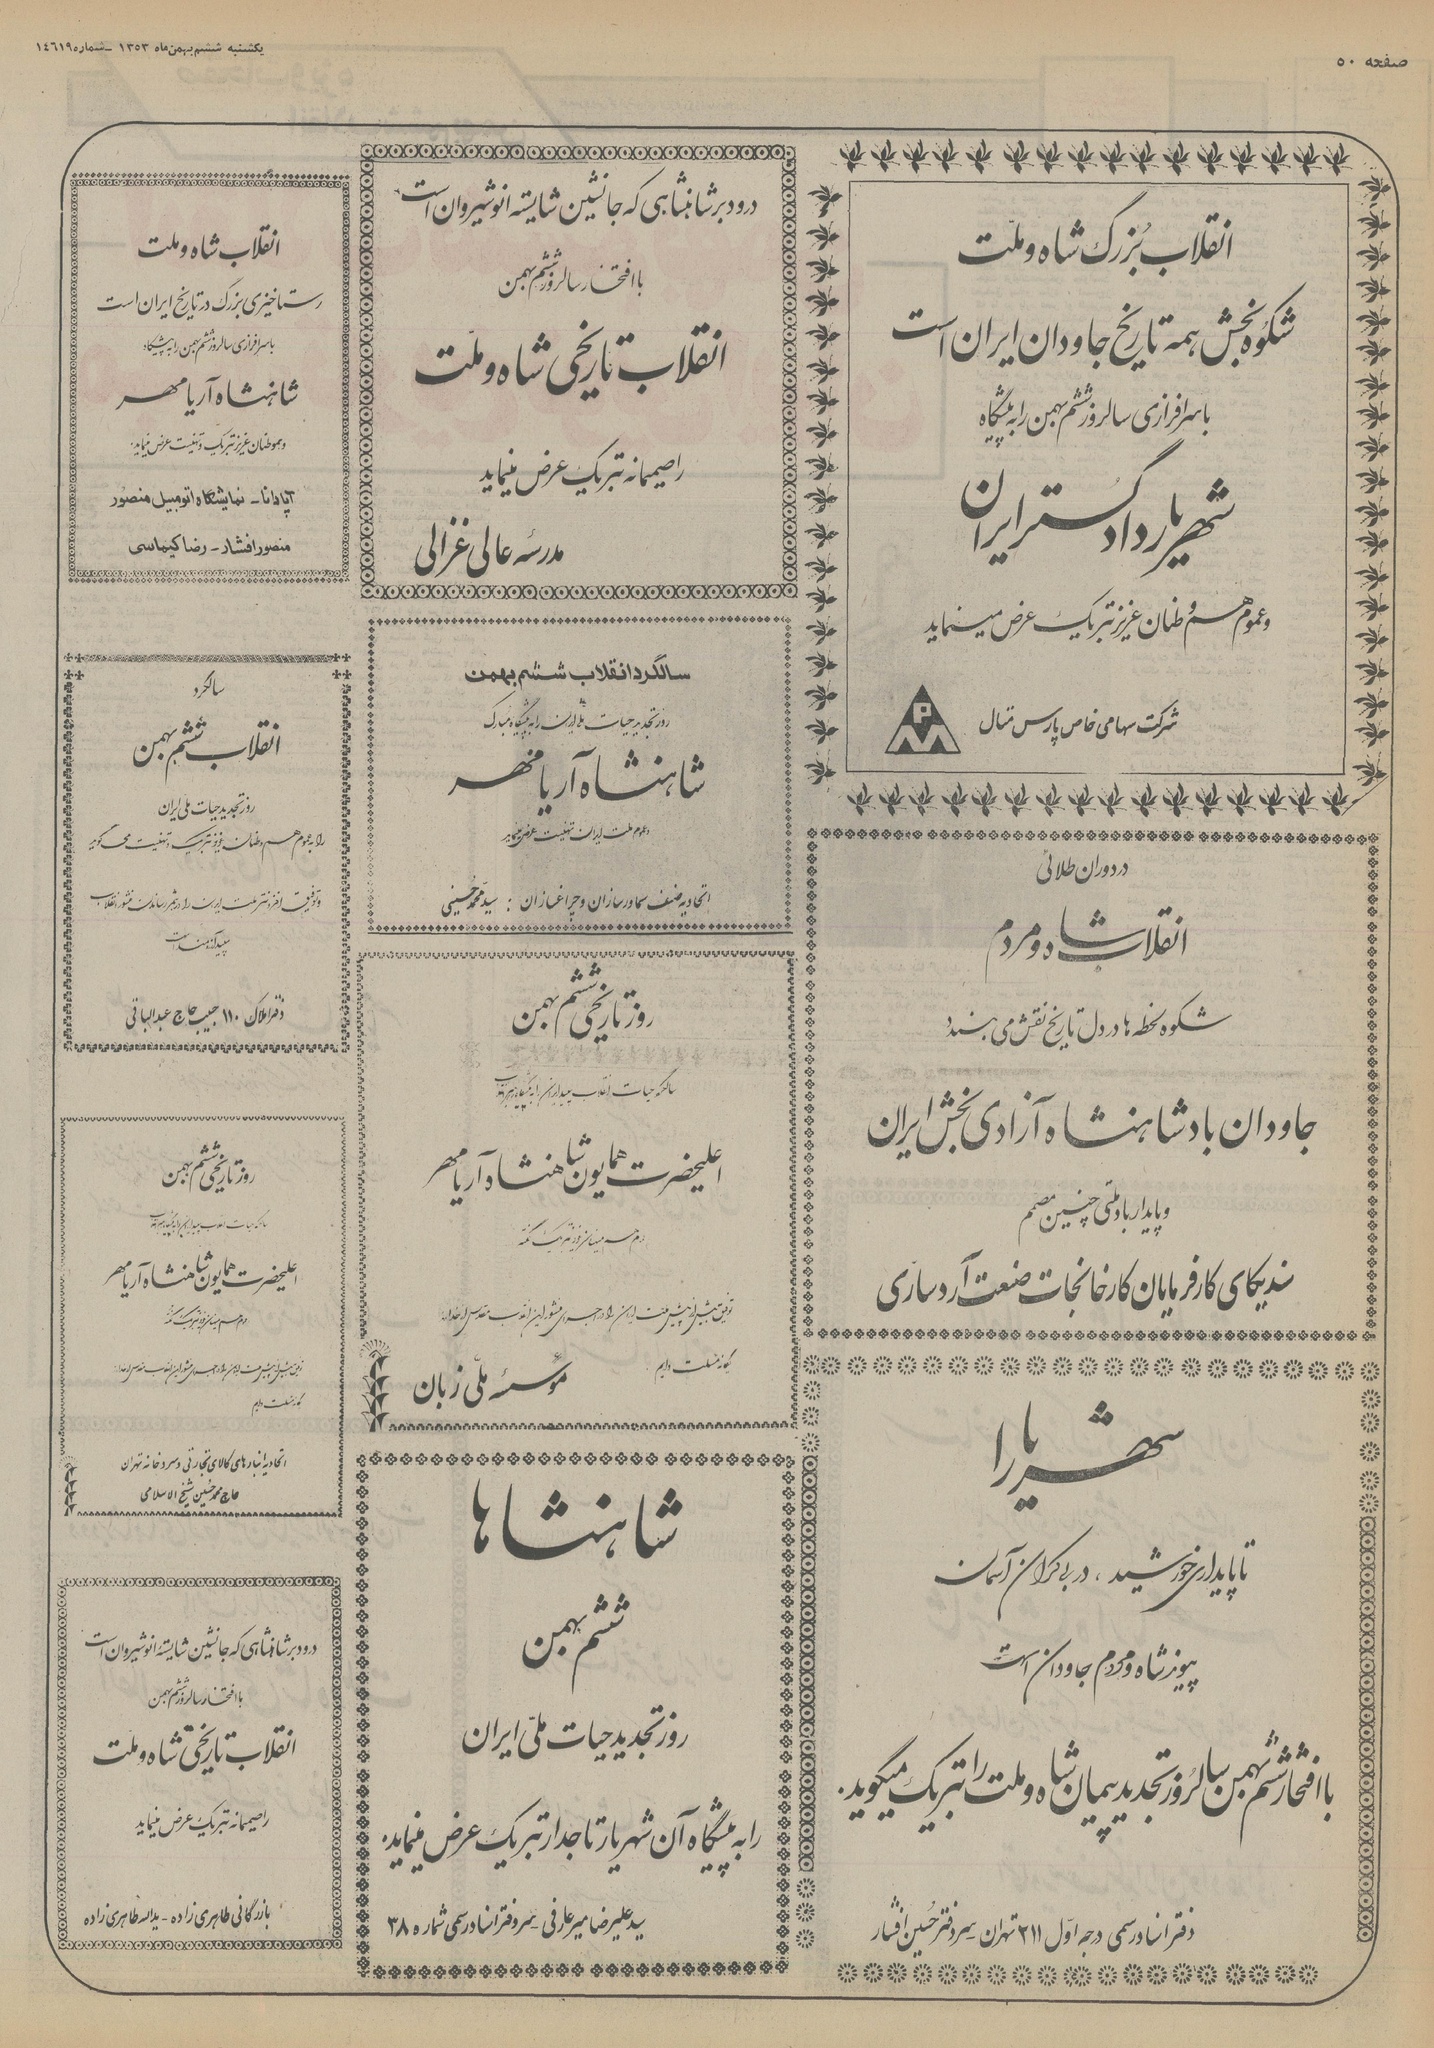 صفحه ۵۰
یکشنبه ششم بهمن ماه ۱۳۵۳ ـ شماره ۱۴۶۱۹
انقلاب بزرگ شاه و ملّت
شکوه بخش همه تاریخ جاودان ایران است
با سرافرازی سالروز ششم بهمن را به پیشگاه
شهریار دادگستر ایران
و عموم هم وطنان عزیز تبریک عرض مینماید
شرکت سهامی خاص پارس متال
در دوران طلائی
انقلاب شاه و مردم
شکوه لحظه ها در دل تاریخ نقش می بندد
جاودان باد شاهنشاه آزادی بخش ایران
و پایدار باد ملتی چنین مصمم
سندیکای کارفرمایان کارخانجات صنعت آردسازی
شهریارا
تا پایداری خورشید ، در بی کران آسمان
پیوند شاه و مردم جاودان است
با افتخار ششم بهمن سالروز تجدید پیمان شاه و ملت را تبریک میگوید.
دفتر اسناد رسمی درجه اوّل ۲۱۱ تهران سردفتر حسین افشار
درود بر شاهنشاهی که جانشین شایسته انوشیروان است
با افتخار سالروز ششم بهمن
انقلاب تاریخی شاه و ملّت
را صمیمانه تبریک عرض مینماید
مدرسه عالی غزالی
سالگرد انقلاب ششم بهمن
روز تجدید حیات ملی ایران را به پیشگاه مبارک
شاهنشاه آریامهر
و عموم ملت ایران تهنیت عرض مینماید
اتحادیه صنف سماورسازان و چراغسازان : سید محمد حسینی
روز تاریخی ششم بهمن
اعلیحضرت همایون شاهنشاه آریامهر
مؤسسه ملّی زبان
شاهنشاها
ششم بهمن
روز تجدید حیات ملّی ایران
را به پیشگاه آن شهریار تاجدار تبریک عرض مینماید.
سید علیرضا میرعارفی سردفتر اسناد رسمی شماره ۳۸
انقلاب شاه و ملت
رستاخیزی بزرگ در تاریخ ایران است
با سرافرازی سالروز ششم بهمن را به پیشگاه
شاهنشاه آریامهر
و هموطنان عزیز تبریک و تهنیت عرض مینماید.
آپادانا ـ نمایشگاه اتومبیل منصور
منصور افشار ـ رضا کیماسی
سالگرد
انقلاب ششم بهمن
روز تجدید حیات ملی ایران
را به عموم هم وطنان عزیز تبریک و تهنیت می گوید
دفتر املاک ۱۱۰ حبیب حاج عبدالباقی
روز تاریخی ششم بهمن
اعلیحضرت همایون شاهنشاه آریامهر
اتحادیه انبارهای کالای تجارتی و سردخانه تهران
حاج محمد حسین شیخ الاسلامی
درود بر شاهنشاهی که جانشین شایسته انوشیروان است
با افتخار سالروز ششم بهمن
انقلاب تاریخی شاه و ملت
را صمیمانه تبریک عرض مینماید
بازرگانی طاهری زاده ـ یداله طاهری زاده